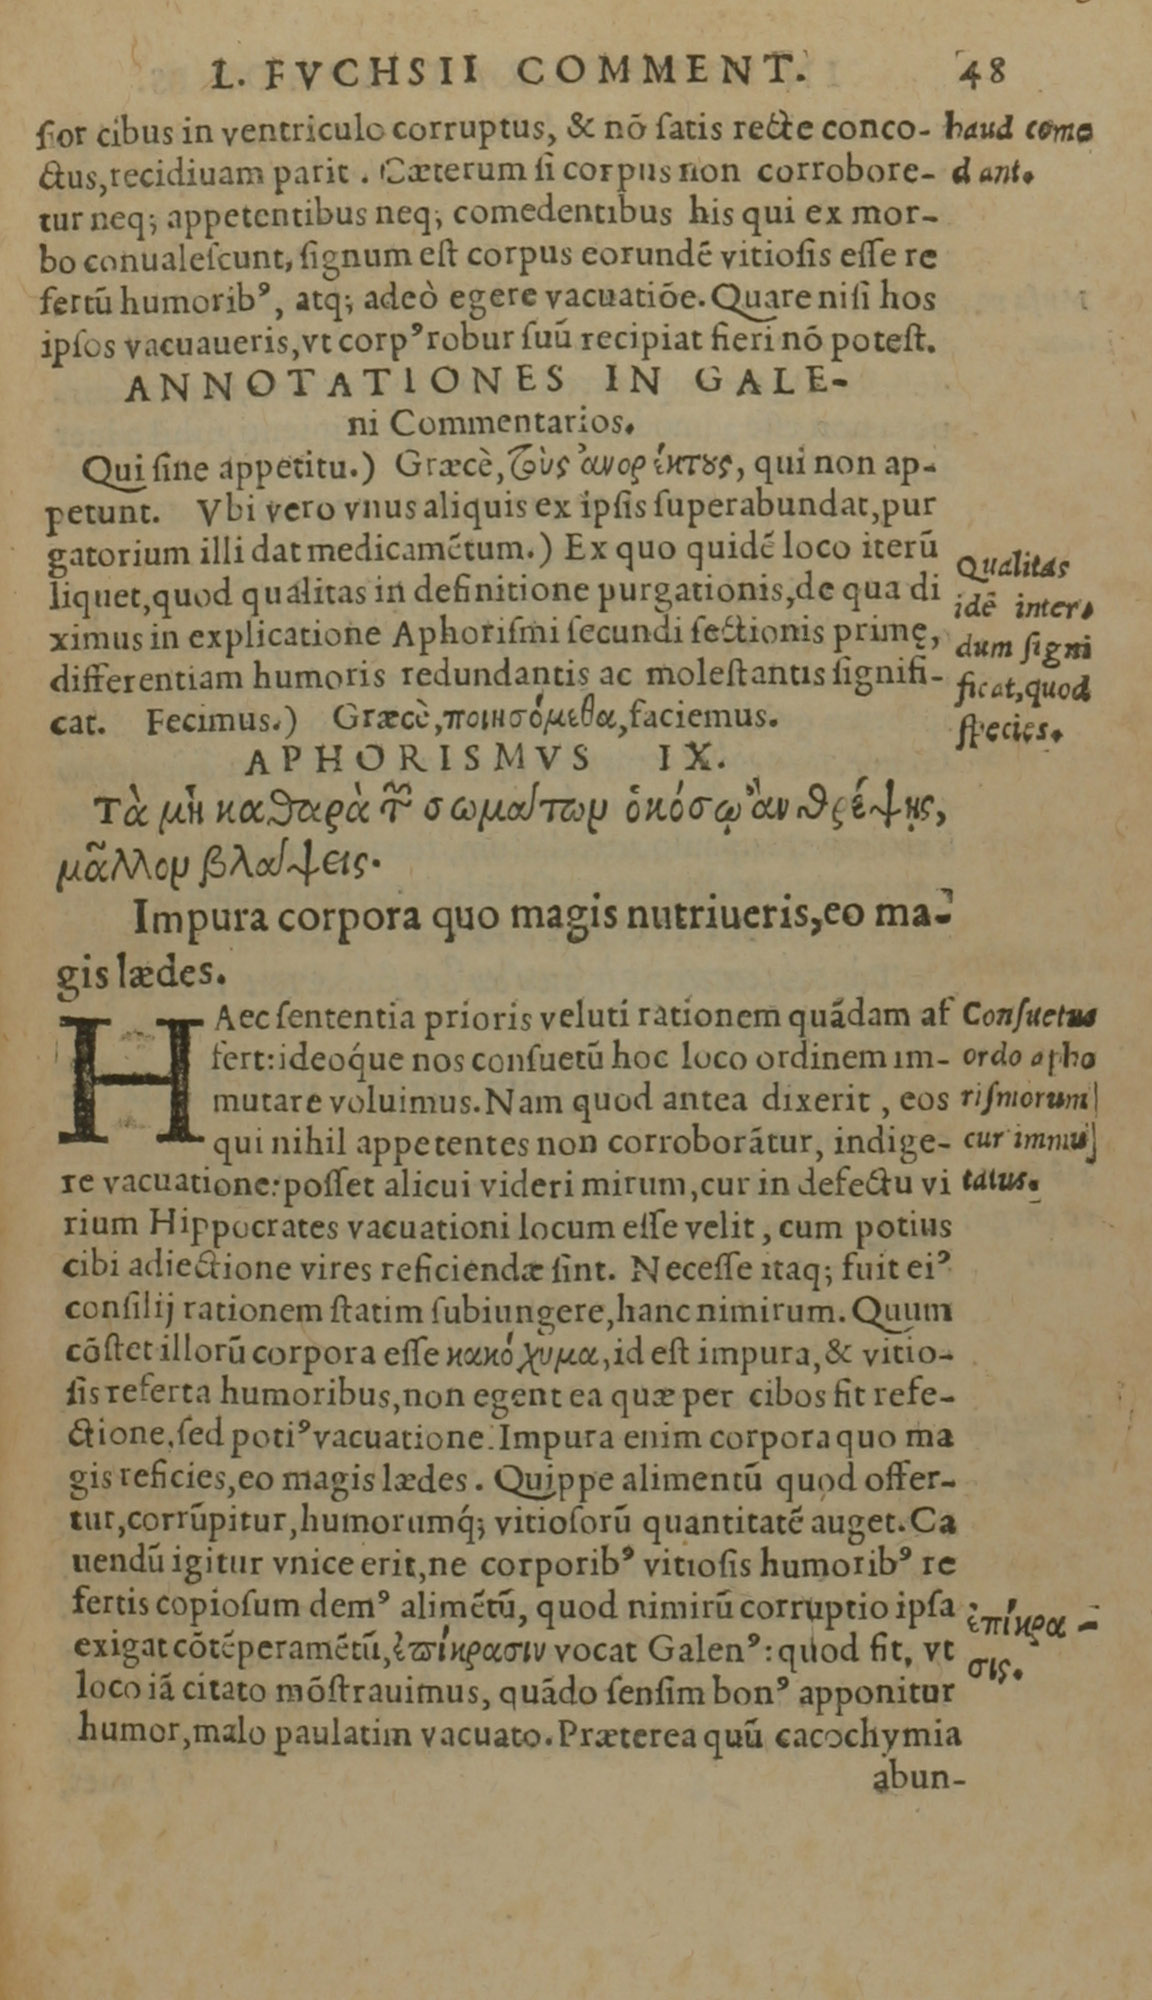 L. FVCHSII COMMENT. 48
ſior cibus in ventriculo corruptus, & nõ ſatis recte conco-
ctus, recidiuam parit. Cæterum ſi corpus non corrobore-
tur neq; appetentibus neq; comedentibus his qui ex mor-
bo conualeſcunt, ſignum eſt corpus eorundẽ vitioſis eſſe re
fertũ humoribꝰ, atq; adeò egere vacuatiõe. Quare niſi hos
ipſos vacuaueris, vt corpꝰ robur ſuũ recipiat fieri nõ poteſt.
haud come
dant.
ANNOTATIONES IN GALE-
ni Commentarios.
Qui ſine appetitu.) Græcè, τοὺς ἀνορέκτους, qui non ap-
petunt. Vbi vero vnus aliquis ex ipſis ſuperabundat, pur
gatorium illi dat medicamẽtum.) Ex quo quidẽ loco iterũ
liquet, quod qualitas in definitione purgationis, de qua di
ximus in explicatione Aphoriſmi ſecundi ſectionis primę,
differentiam humoris redundantis ac moleſtantis ſignifi-
cat. Fecimus.) Græcè, ποιησόμεθα, faciemus.
Qualitas
idẽ inter-
dum ſigni
ficat, quod
ſpecies.
APHORISMVS IX.
Τὰ μὴ καθαρὰ τῶν σωμάτων ὁκόσῳ ἂν θρέψῃς,
μᾶλλον βλάψεις.
Impura corpora quo magis nutriueris, eo ma-
gis lædes.
HAec ſententia prioris veluti rationem quãdam af
fert: ideoq́ue nos conſuetũ hoc loco ordinem im-
mutare voluimus. Nam quod antea dixerit, eos
qui nihil appetentes non corroborãtur, indige-
re vacuatione: poſſet alicui videri mirum, cur in defectu vi
rium Hippocrates vacuationi locum eſſe velit, cum potius
cibi adiectione vires reficiendæ ſint. Neceſſe itaq; fuit eiꝰ
conſilij rationem ſtatim ſubiungere, hanc nimirum. Quum
cõſtet illorũ corpora eſſe κακόχυμα, id eſt impura, & vitio-
ſis referta humoribus, non egent ea quæ per cibos fit refe-
ctione, ſed potiꝰ vacuatione. Impura enim corpora quo ma
gis reficies, eo magis lædes. Quippe alimentũ quod offer-
tur, corrũpitur, humorumq́; vitioſorũ quantitatẽ auget. Ca
uendũ igitur vnice erit, ne corporibꝰ vitioſis humoribꝰ re
fertis copioſum demꝰ alimẽtũ, quod nimirũ corruptio ipſa
exigat cõtẽperamẽtũ, ἐπίκρασιν vocat Galenꝰ: quod fit, vt
loco iã citato mõſtrauimus, quãdo ſenſim bonꝰ apponitur
humor, malo paulatim vacuato. Præterea quũ cacochymia
Conſuetus
ordo apho
riſmorum
cur immu
tatus.
ἐπίκρα-
σις.
abun-